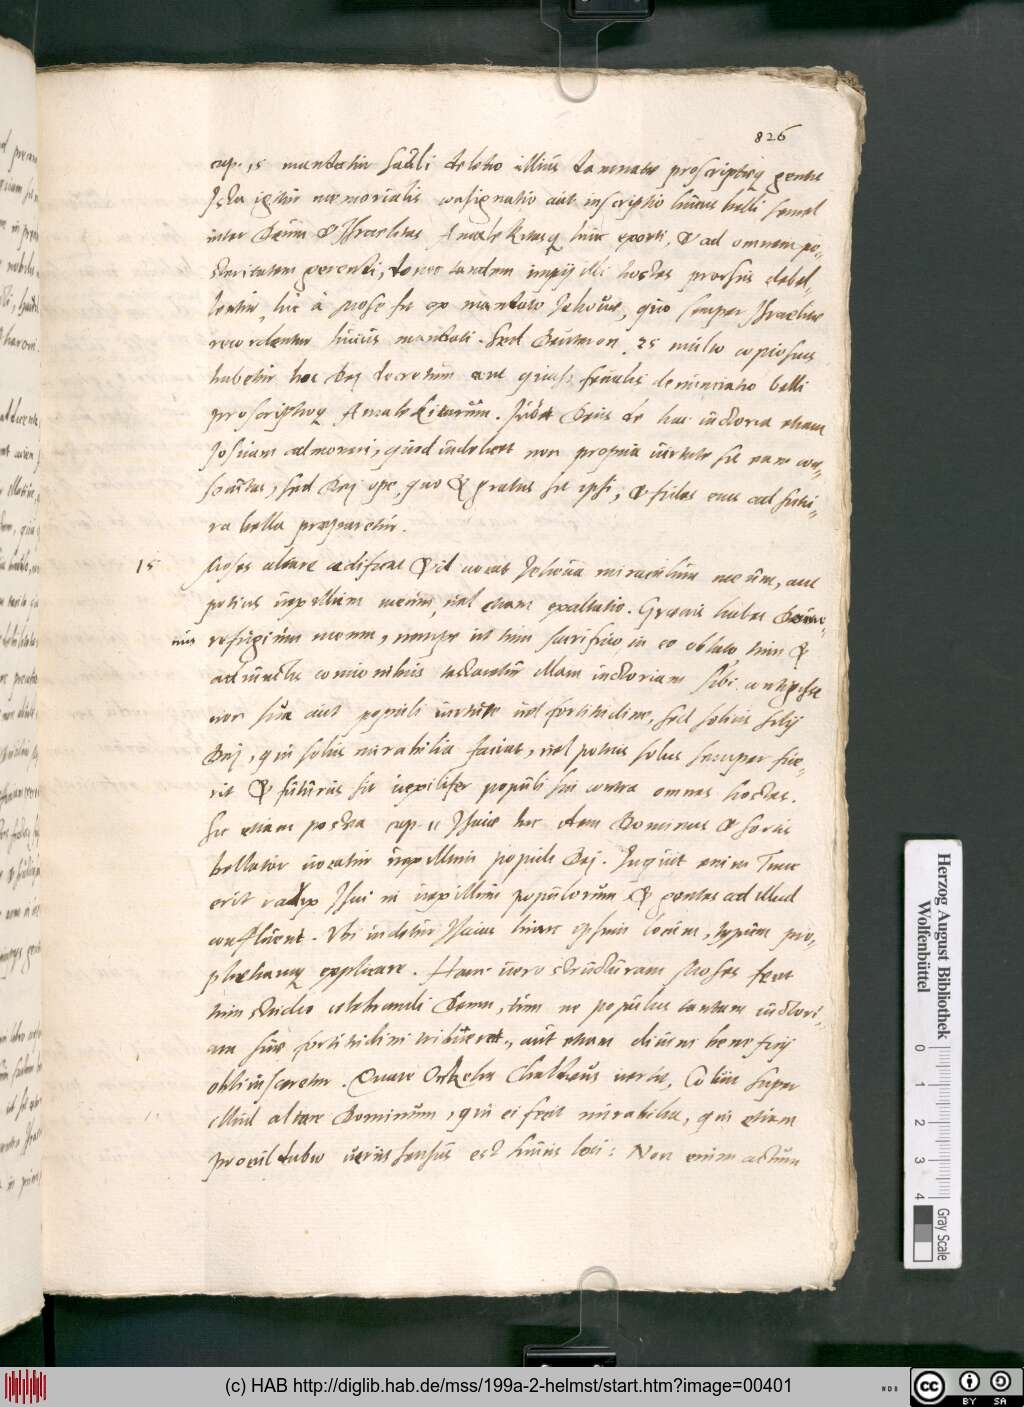 826
cap. 15 mandatur Sauli deletio illius damnatae proscriptaeq gentis
Ista igitur memorialis consignatio aut inscriptio huius belli semel
inter Deum & Israelitas Amalekitasq hinc exorti, & ad omnem po„
steritatem gerendi, donec tandem impij illi hostes prorsus debel„
lentur, hic à Mose fit ex mandato Jehovae, quo semper Israelitae
recordentur huius mandati. Sed Deuteron. 25 multo copiosius
habetur hoc Dej decretum aut quasi feralis denunciatio belli
proscriptioq Amalekitarum. Jubet Deus de hac victoria etiam
Josuam admoneri, quod videlicet non propria virtute sit eam con„
secutus, sed Dej ope, quo & gratus sit ipsi, & fidat eius ad futu„
ra bella praeparetur.
15 Moses altare aedificat & id vocat Jehova miraculum meum, aut
potius vexillum meum, vel etiam exaltatio. Graecus habet Domi„
nus refugium meum, nempe ut tum sacrificio in eo oblato tum &
adiunctis concionibus testantur illam victoriam sibi contigisse
non sua aut populi virtute vel fortitudine, sed solius filij
Dej, qui solus mirabilia faciat, vel potius solus semper fue„
rit & futurus sit vexilifer populi sui contra omnes hostes.
Sic etiam postea cap 11 Isaiae hic idem Dominus & fortis
bellator vocatur vexillum populi Dej. Inquit enim Tunc
erit radix Isai in vexillum populorum & gentes ad illud
confluent. Ubi videtur Isaias hunc ipsum locum, typum pro„
phetiamq explicare. Hanc vero structuram Moses fecit
tum studio celebrandi Deum, tum ne populus tantam victori„
am suae fortitudini tribueret, aut etiam divini beneficij
oblivisceretur. Quare Onkelus Chaldaeus vertit, Coluit super
illud altare Dominum, qui ei fecit mirabilia, qui etiam
procul dubio verus sensus est huius loci: Non enim actum
Herzog August Bibliothek
Wolfenbüttel
0 1 2 3 4
Gray Scale
(c) HAB http://diglib.hab.de/mss/199a-2-helmst/start.htm?image=00401
cc BY SA